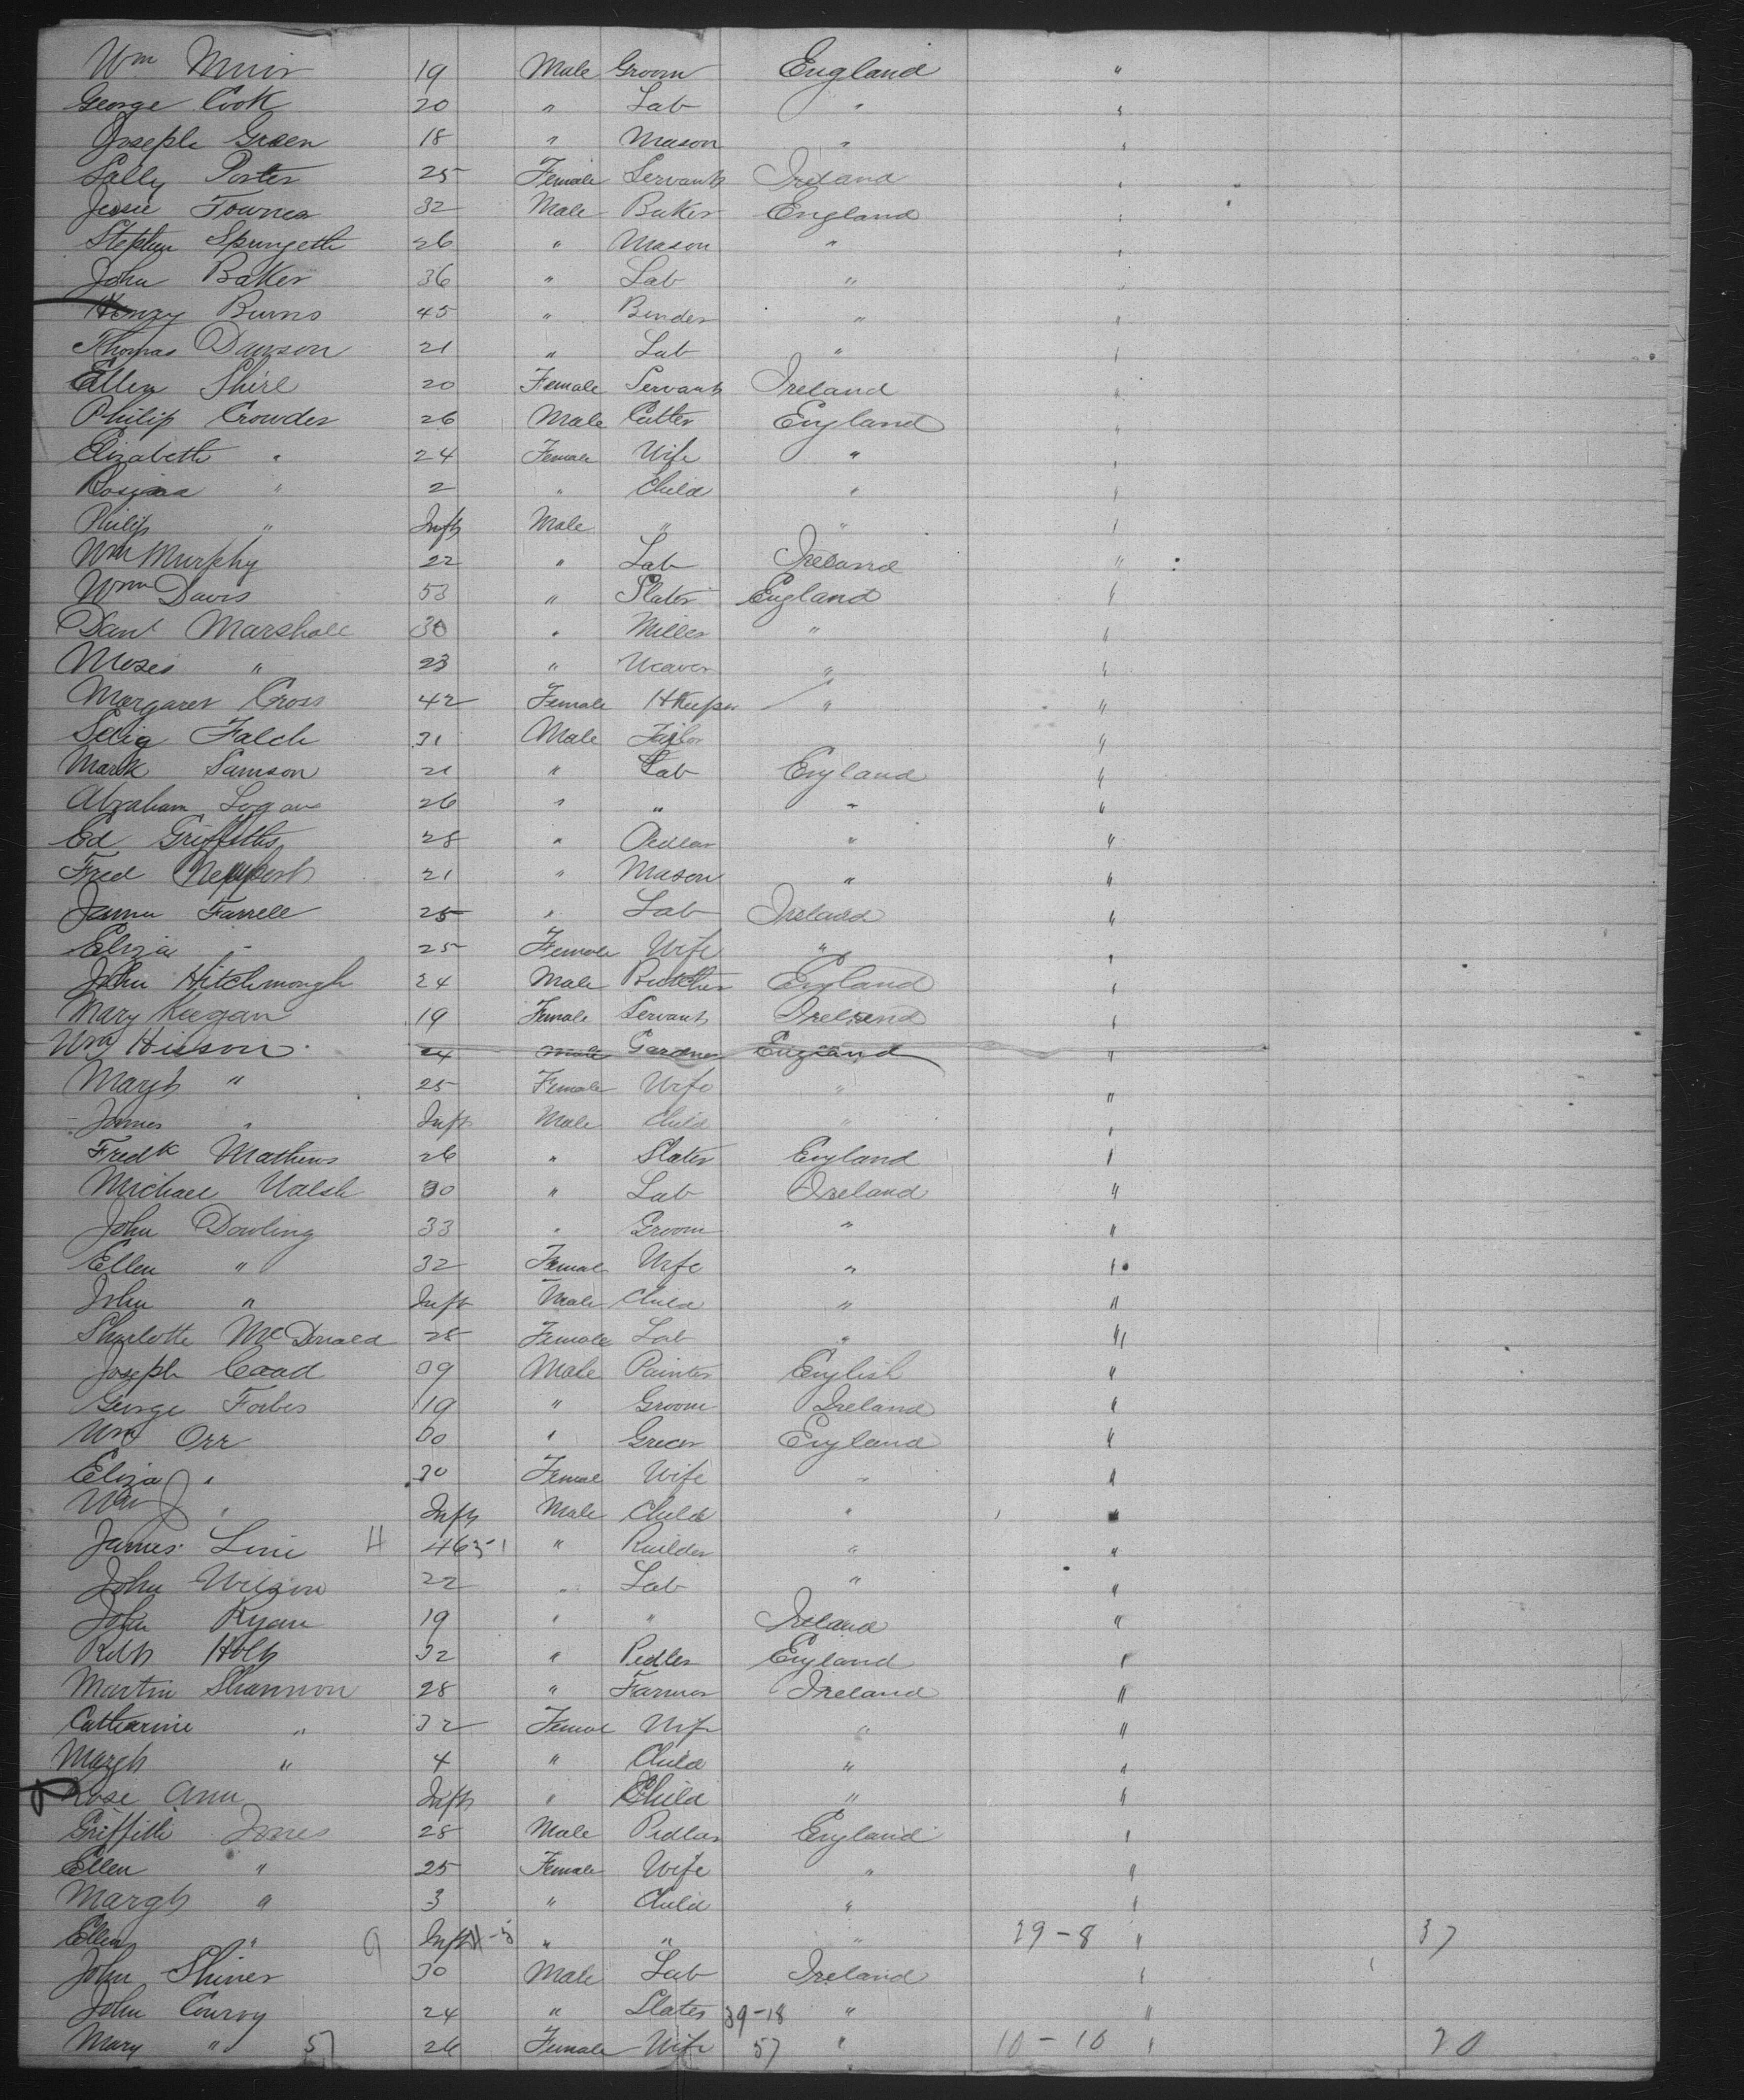 Wm Muir 19 Male Groom England "
George Cook 20 " Lab " "
Joseph Green 18 " Mason " "
Sally Porter 25 Female Servant Ireland "
Jessie Townes 32 Male Baker England "
Stephen Springett 26 " Mason " "
John Baker 36 " Lab " "
Henry Burns 45 " Binder " "
Thomas Dawson 21 " Lab " "
Ellen Shire 20 Female Servant Ireland "
Philip Crowder 26 Male Cutter England "
Elizabeth " 24 Female Wife " "
Rosina " 2 " Child " "
Philip " Inft Male " " "
Wm Murphy 22 " Lab Ireland "
Wm Davis 53 " Slater England "
Danl Marshall 30 " Miller " "
Moses " 23 " Weaver " "
Margaret Cross 42 Female HKeeper " "
Falch 31 Male Tailor "
Mark Samson 21 " Lab England "
Abraham Logan 26 " " " "
Ed Griffiths 28 " Pedlar " "
Fred Newport 21 " Mason " "
James Farrell 25 " Lab Ireland "
Eliza " 25 Female Wife " "
John Hitchmough 24 Male Butcher England "
Mary Keegan 19 Female Servant Ireland "
Wm Hisson 24 Male Gardner England "
Margt " 25 Female Wife " "
James " Inft Male Child " "
Fredk Mathews 26 " Slater England "
Michael Walsh 30 " Lab Ireland "
John Dowling 33 " Groom " "
Ellen " 32 Femal Wife " "
John " Inft Male Child " "
Sharlotte McDonald 28 Female Lab " "
Joseph Coad 39 Male Painter English "
George Forbes 19 " Groom Ireland "
Wm Orr 30 " Grocer England "
Eliza J " 30 Femal Wife " "
Wm J " Inft Male Child " "
James Linie H 46 51 " Builder " "
John Wilson 22 " Lab " "
John Ryan 19 " " Ireland "
Robt Holt 32 " Pedler England "
Martin Shannon 28 " Farmer Ireland "
Catharine " 32 Femal Wife " "
Margt " 4 " Child " "
Rose Ann Inft " Child " "
Griffith Jones 28 Male Pedlar England "
Ellen " 25 Female Wife " "
Margt " 3 " Child " "
Ellen " 9 Inft H-5 " " " 29-8 " 37
John Shiner 30 Male Lab Ireland "
John Conroy 24 " Slater 39-18 " "
Mary " 57 26 Female Wife 57 " 10-10 " 20